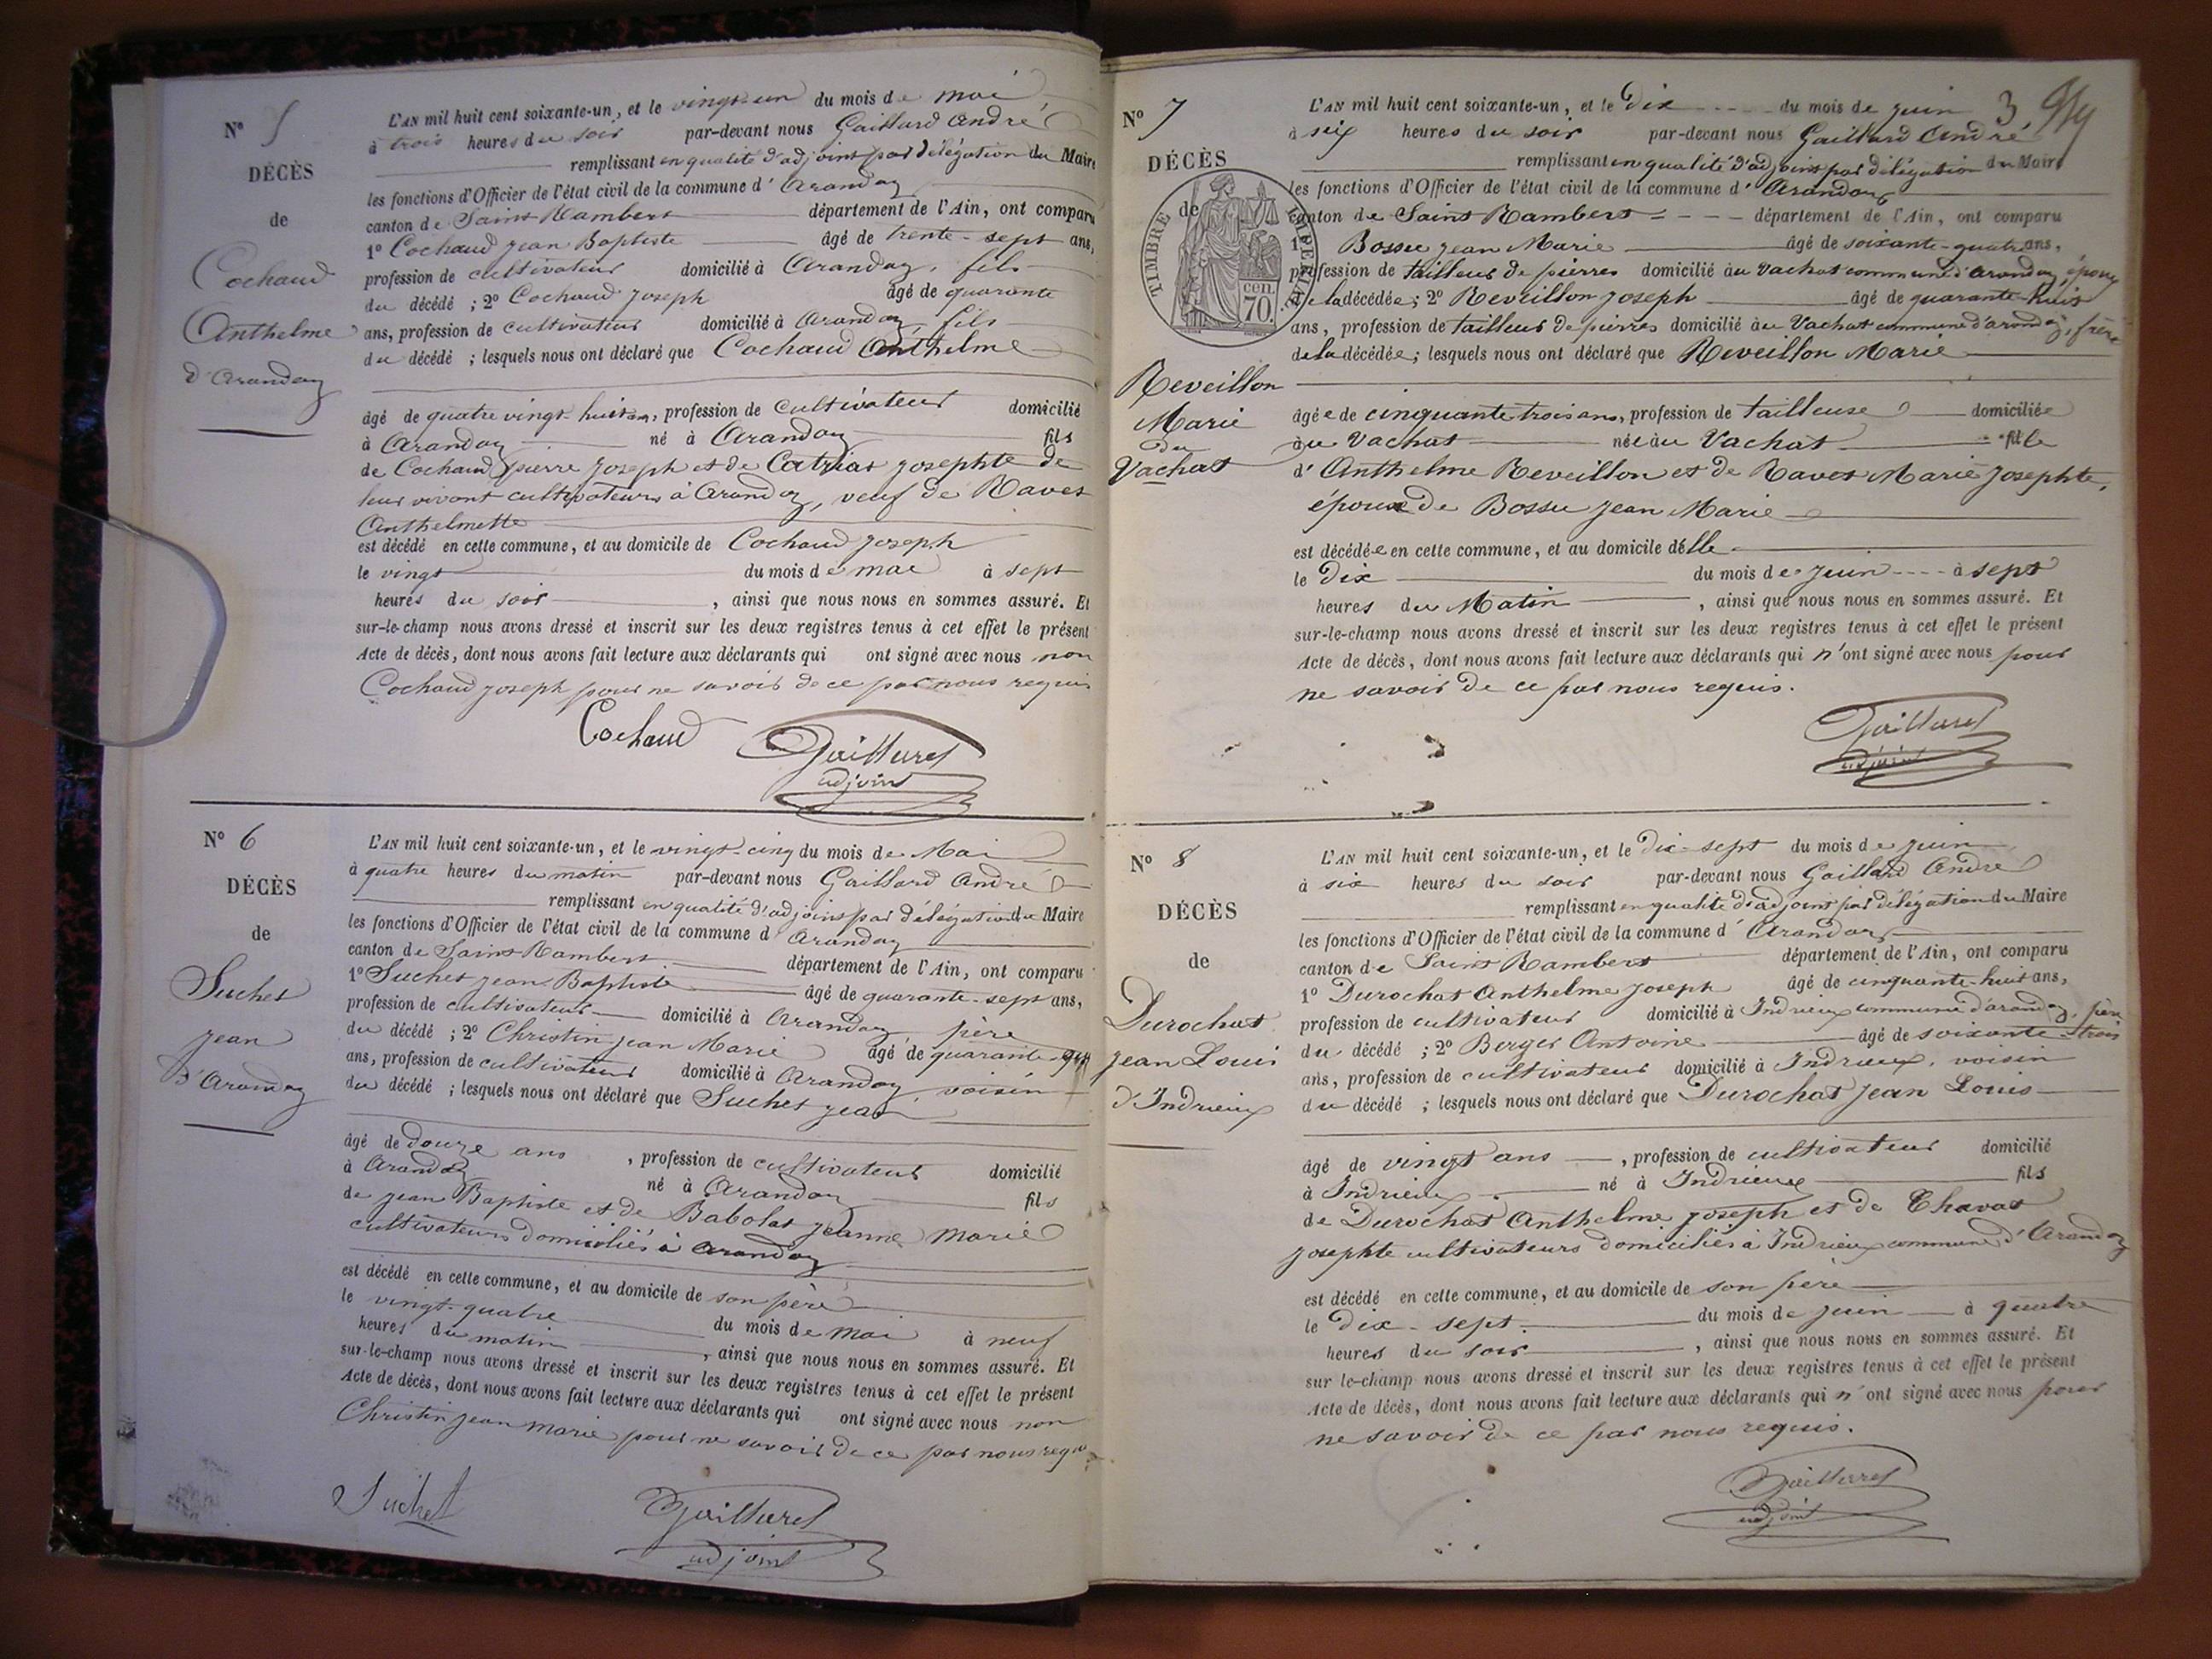 N° 5
DÉCÈS
de
Cochaud
Anthelme
d'Arandaz
L'AN mil huit cent soixante-un, et le vingt-un du mois de mai
à trois heures du soir par-devant nous Gaillard André
remplissant en qualité d'adjoint par délégation du Maire
les fonctions d'Officier de l'état civil de la commune d'Arandaz
canton de Saint Rambert département de l'Ain, ont comparu
1° Cochaud Jean Baptiste âgé de trente-sept ans,
profession de cultivateur domicilié à Arandaz, fils
du décédé ; 2° Cochaud Joseph âgé de quarante
ans, profession de cultivateur domicilié à Arandaz, fils
du décédé ; lesquels nous ont déclaré que Cochaud Anthelme
âgé de quatre vingt-huit ans, profession de cultivateur domicilié
à Arandaz né à Arandaz fils
de Cochaud pierre Joseph et de Catrias Josephte de
leur vivant cultivateurs à Arandaz, veuf de Ravet
Anthelmette
est décédé en cette commune, et au domicile de Cochaud Joseph
le vingt du mois de mai à sept
heures du soir , ainsi que nous nous en sommes assuré. Et
sur-le-champ nous avons dressé et inscrit sur les deux registres tenus à cet effet le présent
Acte de décès, dont nous avons fait lecture aux déclarants qui ont signé avec nous non
Cochaud Joseph pour ne savoir de ce par nous requis
Cochaud Gaillard
adjoint
N° 6
DÉCÈS
de
Suchet
Jean
d'Arandaz
L'AN mil huit cent soixante-un, et le vingt-cinq du mois de Mai
à quatre heures du matin par-devant nous Gaillard André
remplissant en qualité d'adjoint par délégation du Maire
les fonctions d'Officier de l'état civil de la commune d'Arandaz
canton de Saint Rambert département de l'Ain, ont comparu
1° Suchet Jean Baptiste âgé de quarante-sept ans,
profession de cultivateur domicilié à Arandaz père
du décédé ; 2° Christin Jean Marie âgé de quarante
ans, profession de cultivateur domicilié à Arandaz, voisin
du décédé ; lesquels nous ont déclaré que Suchet Jean
âgé de douze ans , profession de cultivateur domicilié
à Arandaz né à Arandaz fils
de Jean Baptiste et de Babolat Jeanne Marie
cultivateurs domiciliés à Arandaz
est décédé en cette commune, et au domicile de son père
le vingt-quatre du mois de Mai à neuf
heures du matin , ainsi que nous nous en sommes assuré. Et
sur-le-champ nous avons dressé et inscrit sur les deux registres tenus à cet effet le présent
Acte de décès, dont nous avons fait lecture aux déclarants qui ont signé avec nous non
Christin Jean Marie pour ne savoir de ce par nous requis
Suchet Gaillard
adjoint
3
N° 7
DÉCÈS
de
TIMBRE IMPERIAL
70 cen.
Reveillon
Marie
du
Vachat
L'AN mil huit cent soixante-un, et le Dix du mois de Juin
à six heures du soir par-devant nous Gaillard André
remplissant en qualité d'adjoint par délégation du Maire
les fonctions d'Officier de l'état civil de la commune d'Arandaz
canton de Saint Rambert département de l'Ain, ont comparu
1° Bossu Jean Marie âgé de soixante-quatre ans,
profession de tailleur de pierres domicilié au Vachat commune d'Arandaz, époux
de la décédée; 2° Reveillon Joseph âgé de quarante-huit
ans, profession de tailleur de pierres domicilié au Vachat commune d'arandaz, frère
de la décédée; lesquels nous ont déclaré que Reveillon Marie
âgée de cinquante trois ans, profession de tailleuse domiciliée
au Vachat née au Vachat fille
d'Anthelme Reveillon et de Ravet Marie Josephte,
épouse de Bossu Jean Marie
est décédée en cette commune, et au domicile d'elle
le Dix du mois de Juin à sept
heures du Matin , ainsi que nous nous en sommes assuré. Et
sur-le-champ nous avons dressé et inscrit sur les deux registres tenus à cet effet le présent
Acte de décès, dont nous avons fait lecture aux déclarants qui n'ont signé avec nous pour
ne savoir de ce par nous requis.
Gaillard
adjoint
N° 8
DÉCÈS
de
Durochat
Jean Louis
d'Indrieux
L'AN mil huit cent soixante-un, et le Dix-sept du mois de Juin
à six heures du soir par-devant nous Gaillard André
remplissant en qualité d'adjoint par délégation du Maire
les fonctions d'Officier de l'état civil de la commune d'Arandaz
canton de Saint Rambert département de l'Ain, ont comparu
1° Durochat Anthelme Joseph âgé de cinquante-huit ans,
profession de cultivateur domicilié à Indrieux commune d'arandaz, père
du décédé ; 2° Berger Antoine âgé de soixante-trois
ans, profession de cultivateur domicilié à Indrieux, voisin
du décédé ; lesquels nous ont déclaré que Durochat Jean Louis
âgé de vingt ans , profession de cultivateur domicilié
à Indrieux né à Indrieux fils
de Durochat Anthelme Joseph et de Chavat
Josephte cultivateurs domiciliés à Indrieux commune d'Arandaz
est décédé en cette commune, et au domicile de son père
le Dix-sept du mois de Juin à quatre
heures du soir , ainsi que nous nous en sommes assuré. Et
sur-le-champ nous avons dressé et inscrit sur les deux registres tenus à cet effet le présent
Acte de décès, dont nous avons fait lecture aux déclarants qui n'ont signé avec nous pour
ne savoir de ce par nous requis.
Gaillard
adjoint